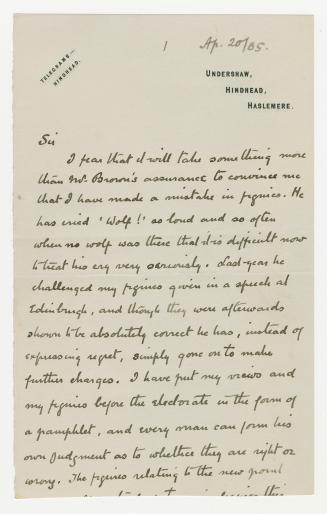 1 Ap. 20/05.
TELEGRAMS—
HINDHEAD.
UNDERSHAW,
HINDHEAD,
HASLEMERE.
Sir
I fear that it will take something more
than Mr. Brown's assurance to convince me
that I have made a mistake in figures. He
has cried 'Wolf!' so loud and so often
when no wolf was there that it is difficult now
to treat his cry very seriously. Last year he
challenged my figures given in a speech at
Edinburgh, and though they were afterwards
shown to be absolutely correct he has, instead of
expressing regret, simply gone on to make
further charges. I have put my views and
my figures before the electorate in the form of
a pamphlet, and every man can form his
own judgment as to whether they are right or
wrong. The figures relating to the new point